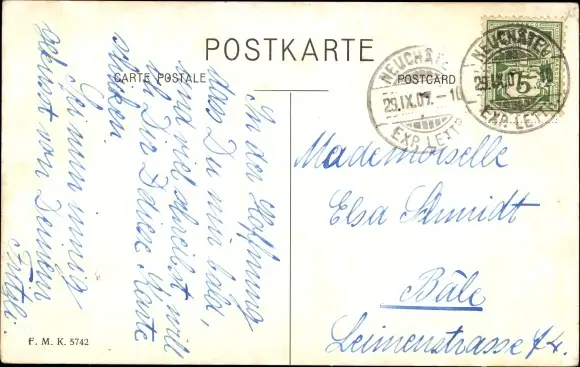 POSTKARTE
CARTE POSTALE
POSTCARD
NEUCHÂTEL
29.IX.07.–10
EXP. LETTR.
NEUCHÂTEL
29.IX.07.–10
EXP. LETTR.
5
In der Hoffnung
dass Du mir bald,
und viel schreibst will
ich Dir diese Karte
schicken.
Sei nun innig
geküsst von Deinem
Fritzli.
Mademoiselle
Elsa Schmidt
Bâle
Leimenstrasse 74.
F. M. K. 5742